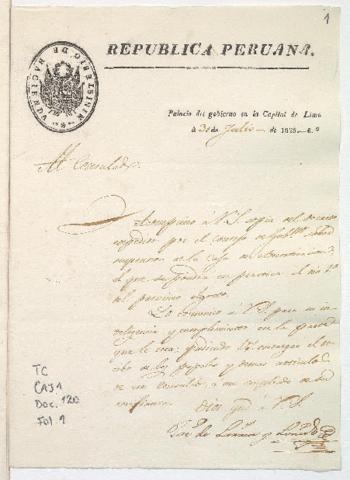 1
MINISTERIO DE HACIENDA
REPUBLICA PERUANA.
Palacio del gobierno en la Capital de Lima
á 30 de Julio de 1825.—6.º
Al Consulado.
Acompaño á V.S. copia del decreto
expedido por el Consejo de Gob.no sobre
supresion de la casa de
el que se pondrá en practica el dia 1.º
del procsimo Agosto.
Lo comunico á V.S. para su in
teligencia y cumplimiento en la parte
que le toca; pudiendo V.S. encargar el
de los papeles y demas
de ese Consulado, á un empleado de su
confianza.
Dios gue. á V.S.
José de Larrea y Loredo
TC
CAJ 1
DOC. 120
FOL 1